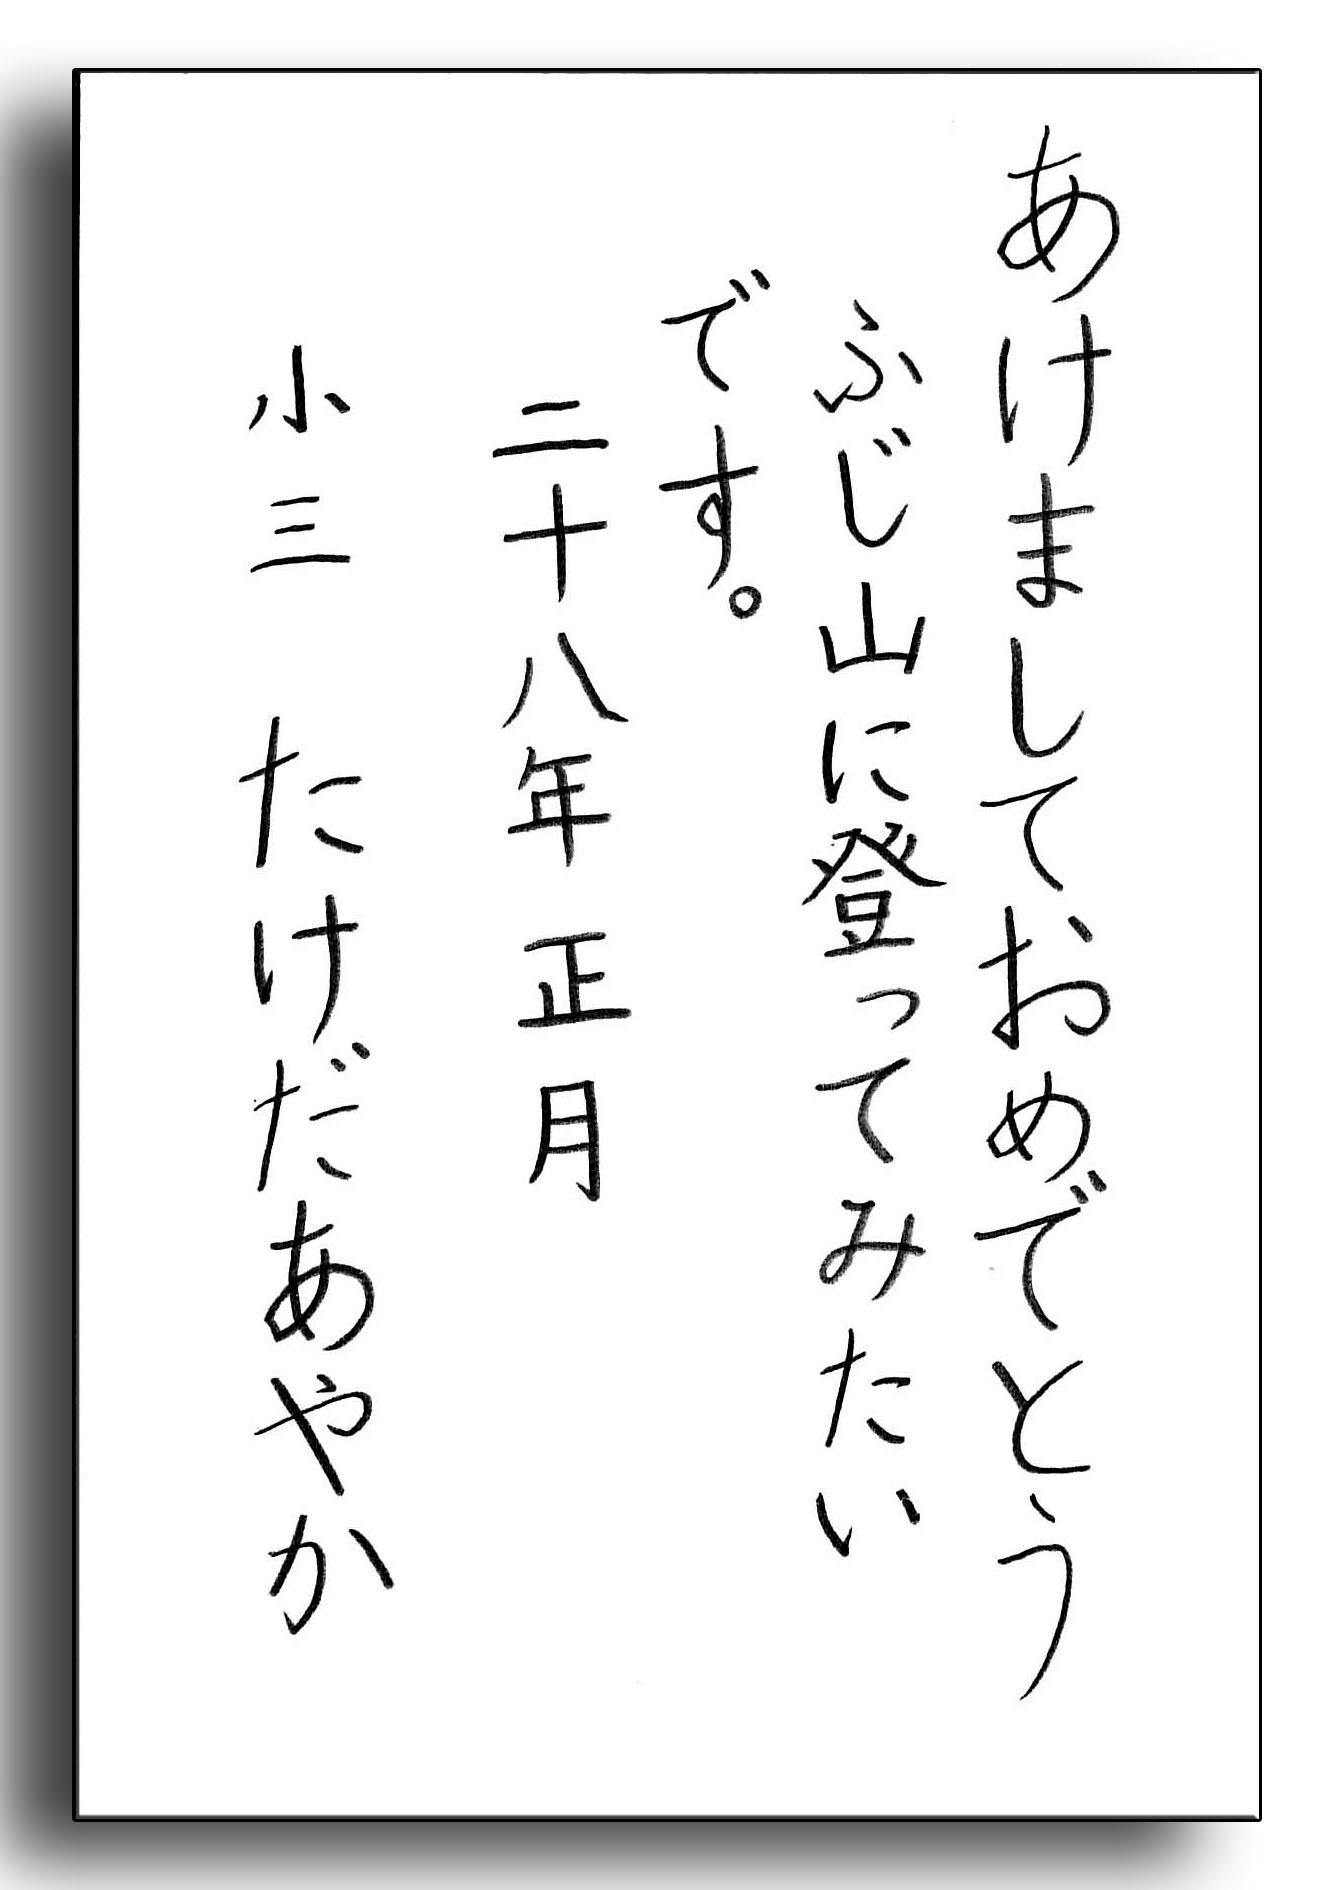 あけましておめでとう
ふじ山に登ってみたい
です。
二十八年 正月
小三 たけだあやか